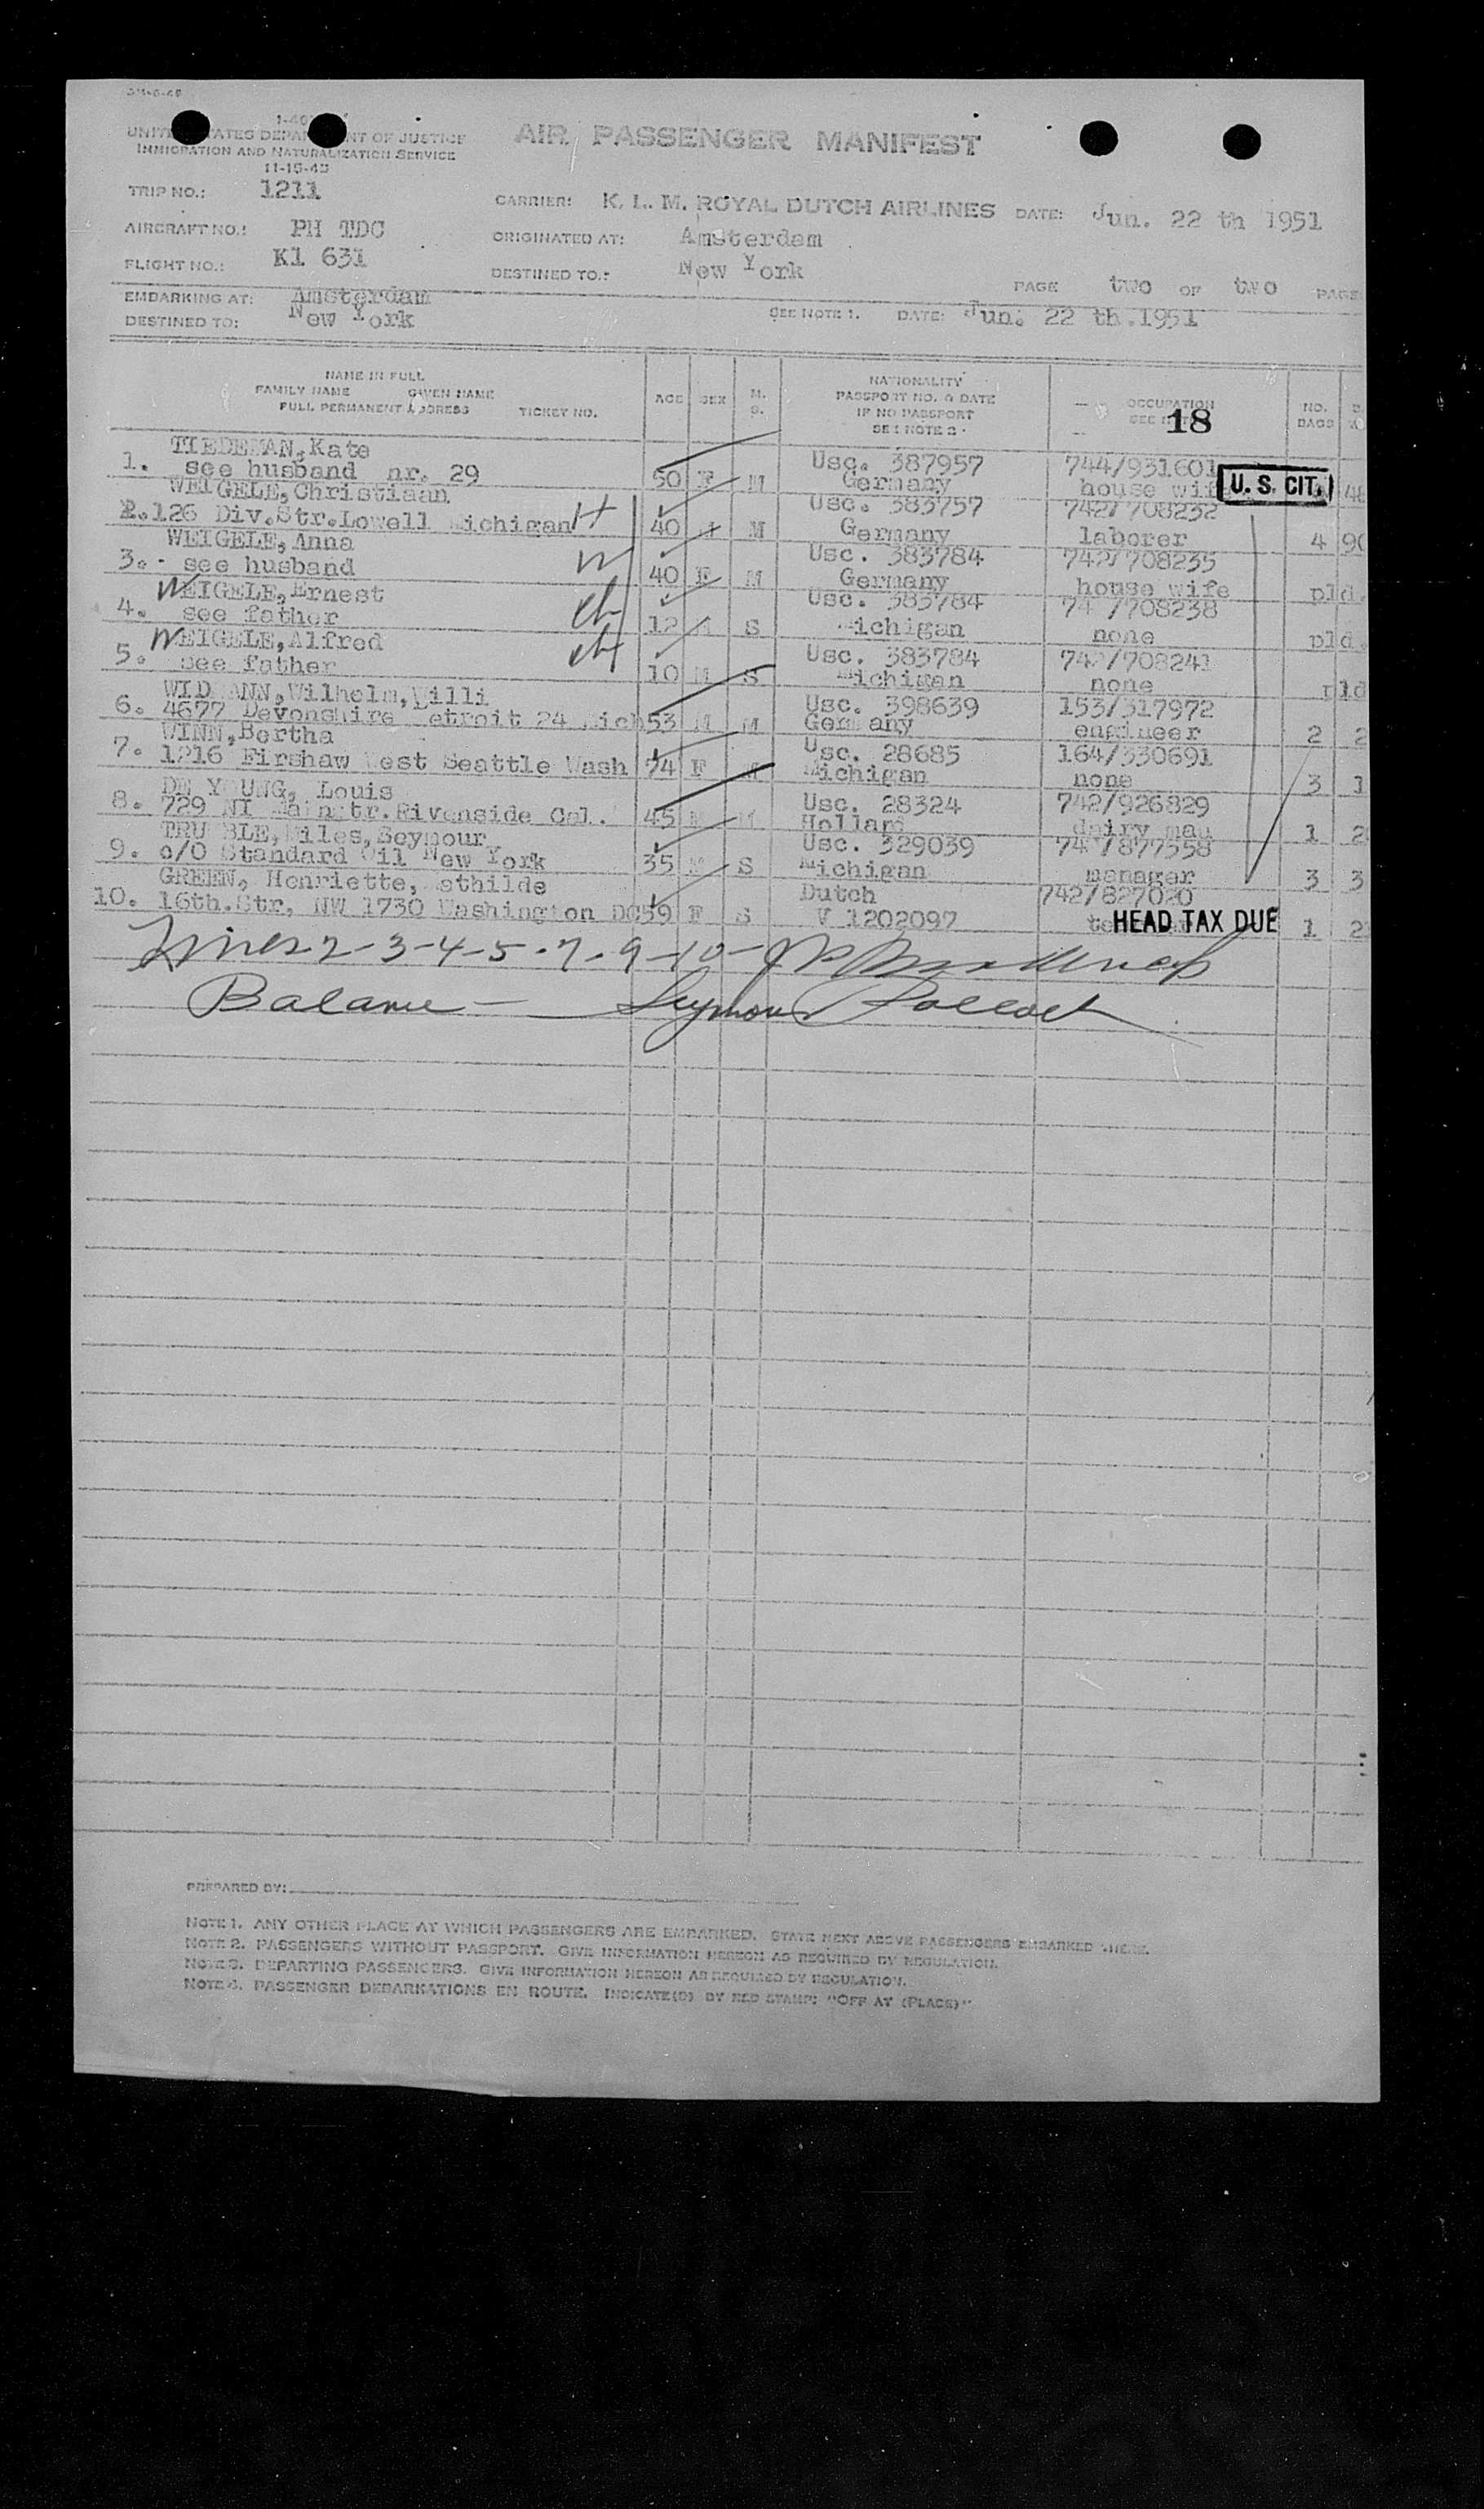 UNITED STATES DEPARTMENT OF JUSTICE
IMMIGRATION AND NATURALIZATION SERVICE
11-15-45
AIR PASSENGER MANIFEST
TRIP NO.: 1211
CARRIER: K. L. M. ROYAL DUTCH AIRLINES DATE: Jun. 22 th 1951
AIRCRAFT NO.: PH TDC
ORIGINATED AT: Amsterdam
FLIGHT NO.: Kl 631
DESTINED TO.: New York
PAGE two OF two PAGE
EMBARKING AT: Amsterdam
DESTINED TO: New York
SEE NOTE 1. DATE: Jun. 22 th.1951
NAME IN FULL
FAMILY NAME GIVEN NAME
FULL PERMANENT ADDRESS TICKET NO.
AGE SEX M. S.
NATIONALITY
PASSPORT NO. & DATE
IF NO PASSPORT
SEE NOTE 2
OCCUPATION
18
NO. BAGS
TIEDEMAN,Kate Usc. 387957 744/931601
1. see husband nr. 29 50 F M Germany house wif U. S. CIT.
WEIGELE,Christiaan Usc. 383757 742/708232
2.126 Div.Str.Lowell Michigan H 40 M M Germany laborer 4 90
WEIGELE,Anna Usc. 383784 742/708235
3. see husband W 40 F M Germany house wife pld.
WEIGELE,Ernest Usc. 383784 74 /708238
4. see father ch 12 M S Michigan none pld.
WEIGELE,Alfred Usc. 383784 742/708241
5. see father ch 10 M S Michigan none pld
WIDMANN,Wilhelm,Willi Usc. 398639 153/317972
6. 4677 Devonshire Detroit 24 Mich 53 M M Germany engineer 2 2
WINN,Bertha Usc. 28685 164/330691
7. 1216 Firshaw West Seattle Wash 74 F M Michigan none 3 1
DE YOUNG, Louis Usc. 28324 742/926829
8. 729 NI Mainstr.Rivenside Cal. 45 M M Holland dairy man 1 2
TRUMBLE,Miles,Seymour Usc. 329039 742/877358
9. c/O Standard Oil New York 35 M S Michigan manager 3 3
GREEN, Henriette, Dutch 742/827020
10. 16th.Str, NW 1730 Washington DC 59 F S V 1202097 HEAD TAX DUE 1 2
Lines 2-3-4-5-7-9-10-
Balance — Seymour Pollock
PREPARED BY:
NOTE 1. ANY OTHER PLACE AT WHICH PASSENGERS ARE EMBARKED. STATE NEXT ABOVE PASSENGERS EMBARKED THERE.
NOTE 2. PASSENGERS WITHOUT PASSPORT. GIVE INFORMATION HEREON AS REQUIRED BY REGULATION.
NOTE 3. DEPARTING PASSENGERS. GIVE INFORMATION HEREON AS REQUIRED BY REGULATION.
NOTE 4. PASSENGER DEBARKATIONS EN ROUTE. INDICATE(D) BY RED STAMP: "OFF AT (PLACE)"